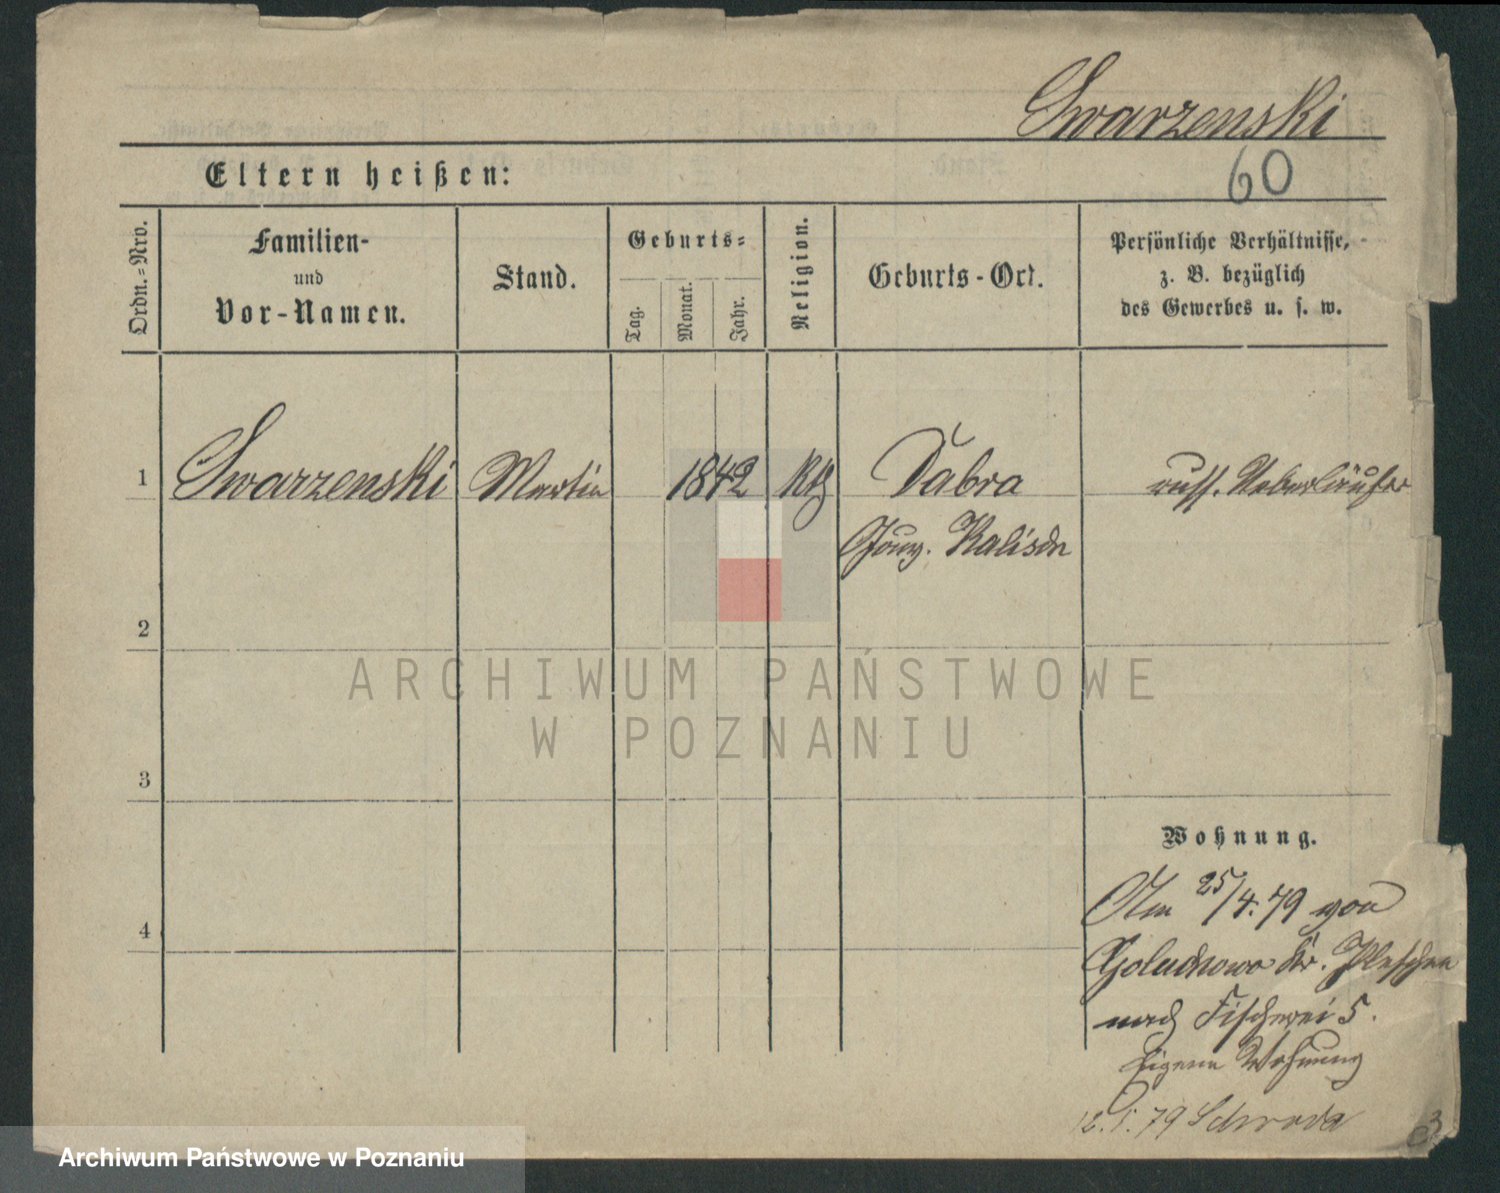 Swarzenski
60
Eltern heißen:
Ordn.-Nro.
Familien-
und
Vor-Namen.
Stand.
Geburts-
Tag.
Monat.
Jahr.
Religion.
Geburts-Ort.
Persönliche Verhältnisse,
z. B. bezüglich
des Gewerbes u. s. w.
1 Swarzenski Martin 1842 kth Dabra russ. Ueberläufer
Gouv. Kalisch
2
ARCHIWUM PAŃSTWOWE
W POZNANIU
3
Wohnung.
4
Am 25/4.79 von
Goluchowo Kr. Pleschen
nach Fischerei 5.
Eigene Wohnung
12.5.79 Schroda
3
Archiwum Państwowe w Poznaniu